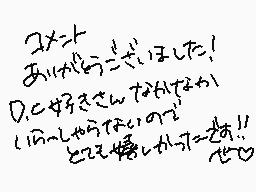 コメント
ありがとうございました!
D.C好きさんなかなか
いらっしゃらないので
とても嬉しかったです!!
ぜ〜♡